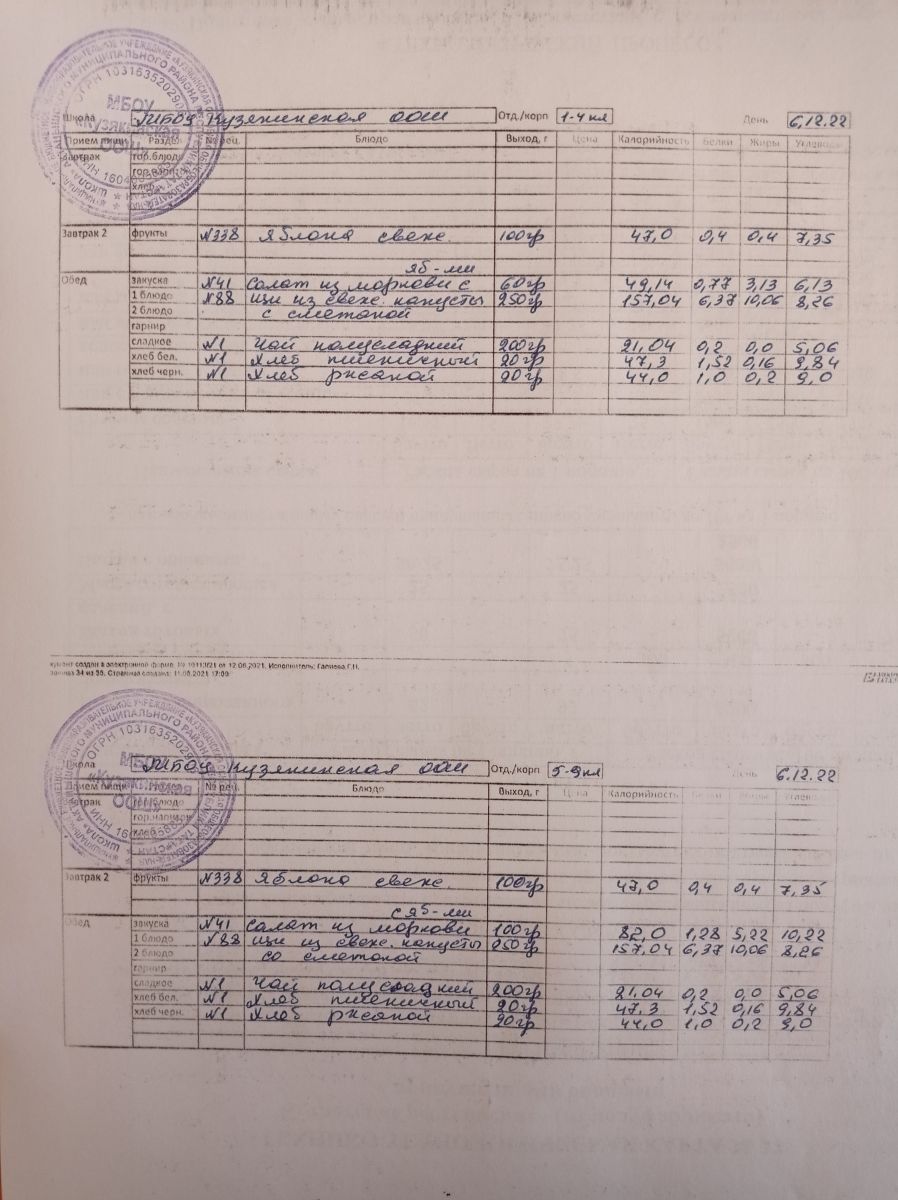 МБОУ
«Кузякинская
ООШ»
Школа МБОУ Кузякинская ООШ Отд./корп 1-4 кл День 6,12.22
Прием пищи Раздел № рец. Блюдо Выход, г Цена Калорийность Белки Жиры Углеводы
Завтрак гор.блюдо
гор.напиток
хлеб
Завтрак 2 фрукты №338 Яблоко свеже. 100гр 47,0 0,4 0,4 7,35
яб-ми
Обед закуска №41 Салат из моркови с 60гр 49,14 0,77 3,13 6,13
1 блюдо №88 щи из свеже. капусты 250гр 157,04 6,37 10,06 8,26
2 блюдо с сметаной
гарнир
сладкое №1 Чай полусладкий 200гр 21,04 0,2 0,0 5,06
хлеб бел. №1 Хлеб пшеничный 20гр 47,3 1,52 0,16 9,84
хлеб черн. №1 Хлеб ржаной 20гр 44,0 1,0 0,2 9,0
кумент создан в электронной форме. № 10113/21 от 12.08.2021. Исполнитель: Галиева Г.Н.
раница 34 из 55. Страница создана: 11.08.2021 17:09
МБОУ
«Кузякинская
ООШ»
Школа МБОУ Кузякинская ООШ Отд./корп 5-9 кл День 6.12.22
Прием пищи Раздел № рец. Блюдо Выход, г Цена Калорийность Белки Жиры Углеводы
Завтрак гор.блюдо
гор.напиток
хлеб
Завтрак 2 фрукты №338 Яблоко свеже. 100гр 47,0 0,4 0,4 7,35
с яб-ми
Обед закуска №41 салат из моркови 100гр 82,0 1,28 5,22 10,22
1 блюдо №88 щи из свеже. капусты 250гр 157,04 6,37 10,06 8,26
2 блюдо со сметаной
гарнир
сладкое №1 Чай полусладкий 200гр 21.04 0,2 0,0 5,06
хлеб бел. №1 Хлеб пшеничный 20гр 47,3 1,52 0,16 9,84
хлеб черн. №1 Хлеб ржаной 20гр 44,0 1,0 0,2 9,0